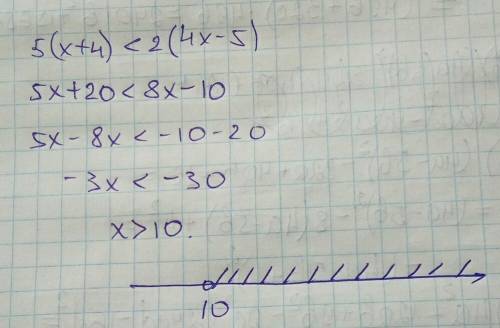 5(x+4) < 2(4x-5)
5x+20 < 8x-10
5x-8x < -10-20
-3x < -30
x>10.
10